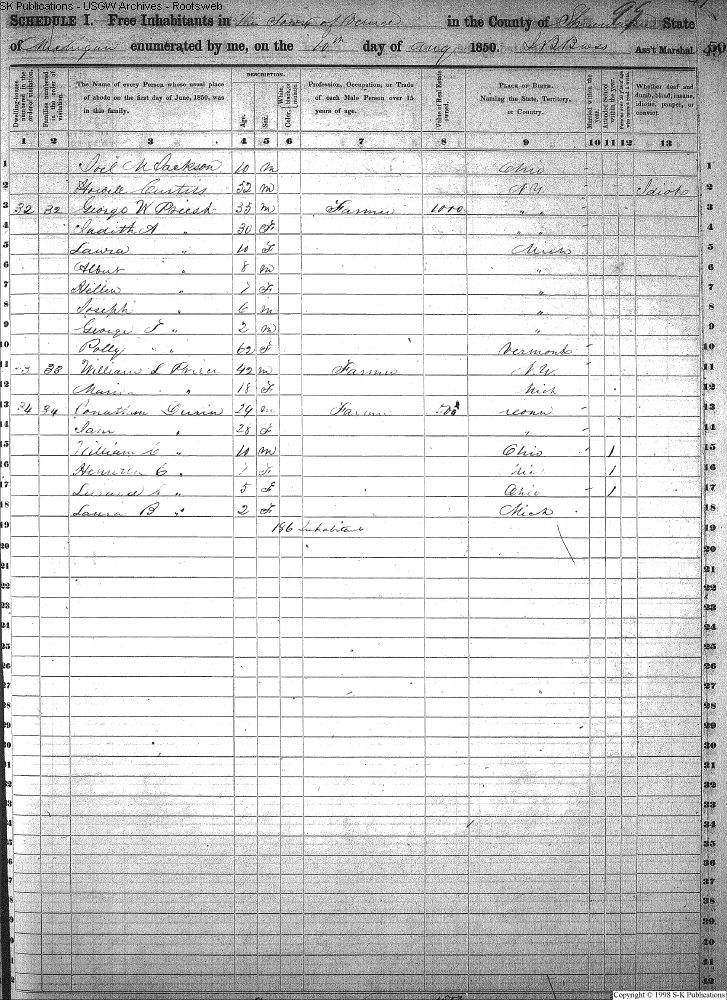 SK Publications - USGW Archives - Rootsweb
SCHEDULE I. Free Inhabitants in the Town of in the County of State
of Michigan enumerated by me, on the 10th day of Aug 1850. Ass't Marshal.
Dwelling-houses numbered in the order of visitation.
Families numbered in the order of visitation.
The Name of every Person whose usual place of abode on the first day of June, 1850, was in this family.
DESCRIPTION.
Age.
Sex.
Color, White, black, or mulatto.
Profession, Occupation, or Trade of each Male Person over 15 years of age.
Value of Real Estate owned.
PLACE OF BIRTH. Naming the State, Territory, or Country.
Married within the year.
Attended School within the year.
Whether deaf and dumb, blind, insane, idiotic, pauper, or convict.
1 2 3 4 5 6 7 8 9 10 11 12 13
1 Joel N Jackson 10 m Ohio
2 Curtiss 32 m N.Y. Idiotic
3 32 32 George W Priest 35 m Farmer 1000 " "
4 Judith A " 30 F " "
5 Laura " 10 F Mich
6 Albert " 8 m "
7 " 7 F "
8 Joseph " 6 m "
9 George F " 2 m "
10 Polly " " 62 F Vermont
11 33 33 William L 42 m Farmer N.Y.
12 Maria " 18 F Mich
13 34 34 29 m Farmer 500 Conn
14 " 28 F "
15 William C " 10 m Ohio 1
16 Henrietta C " 7 F 1
17 " 5 F Ohio 1
18 Laura B " 2 F Mich
19 186 Inhabitants
20
21
22
23
24
25
26
27
28
29
30
31
32
33
34
35
36
37
38
39
40
41
42
Copyright © 1998 S-K Publications